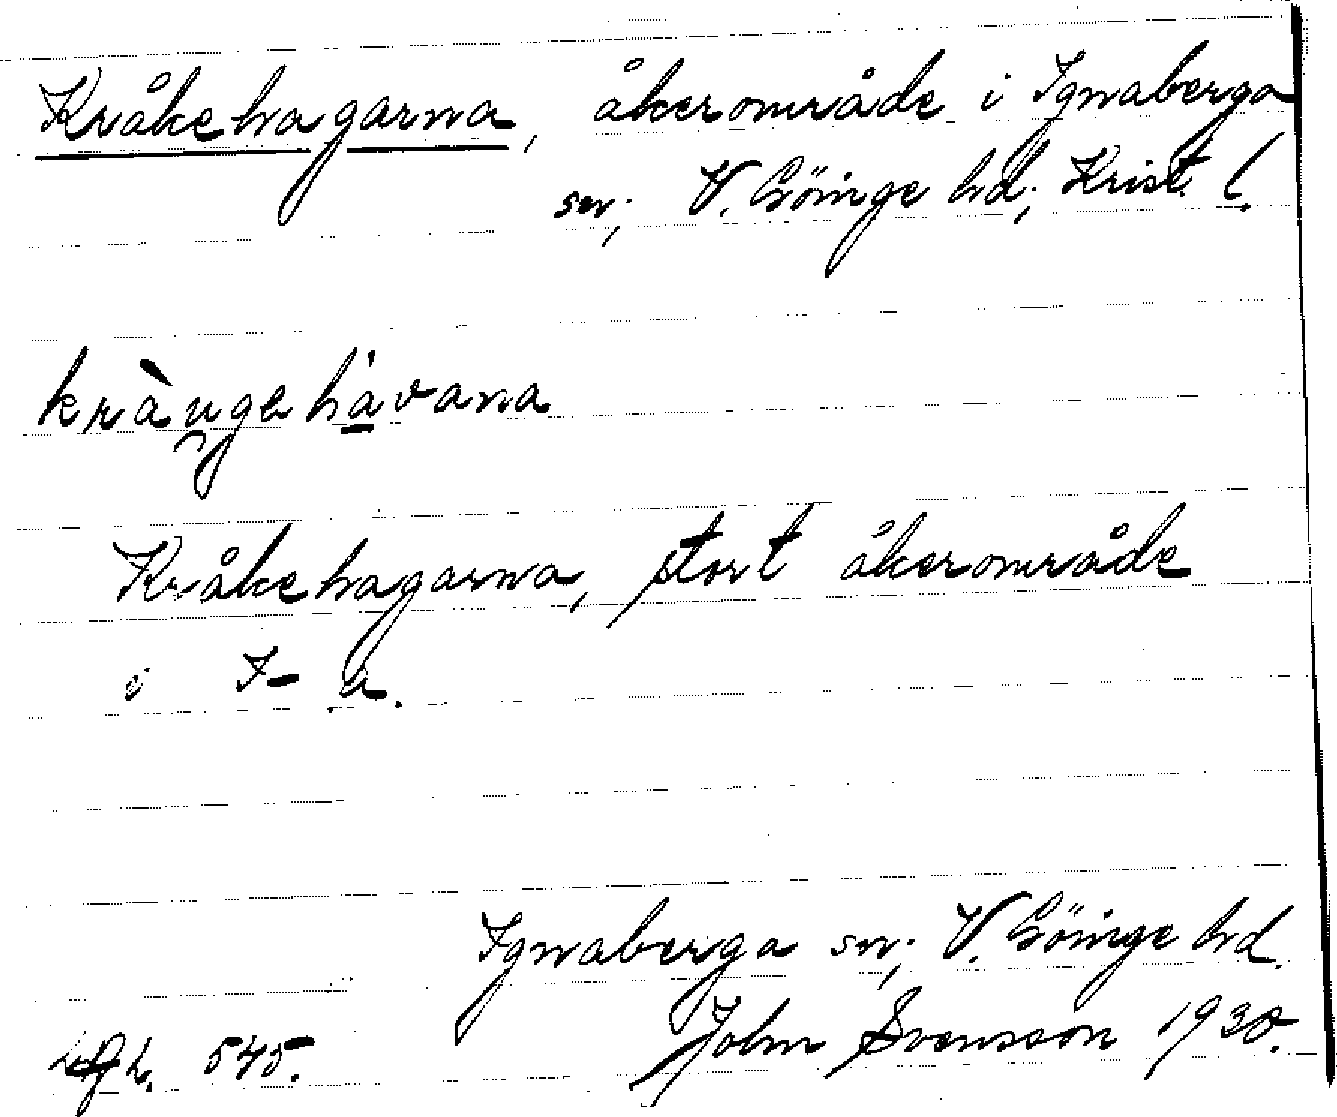 Kråkehagarna, åkerområde i Ignaberga
sn; V. Göinge hd; Krist. l.
kràu̯gehávana
Kråkehagarna, stort åkerområde
i I- a.
Ignaberga sn; V. Göinge hd.
545. John Svensson 1930.